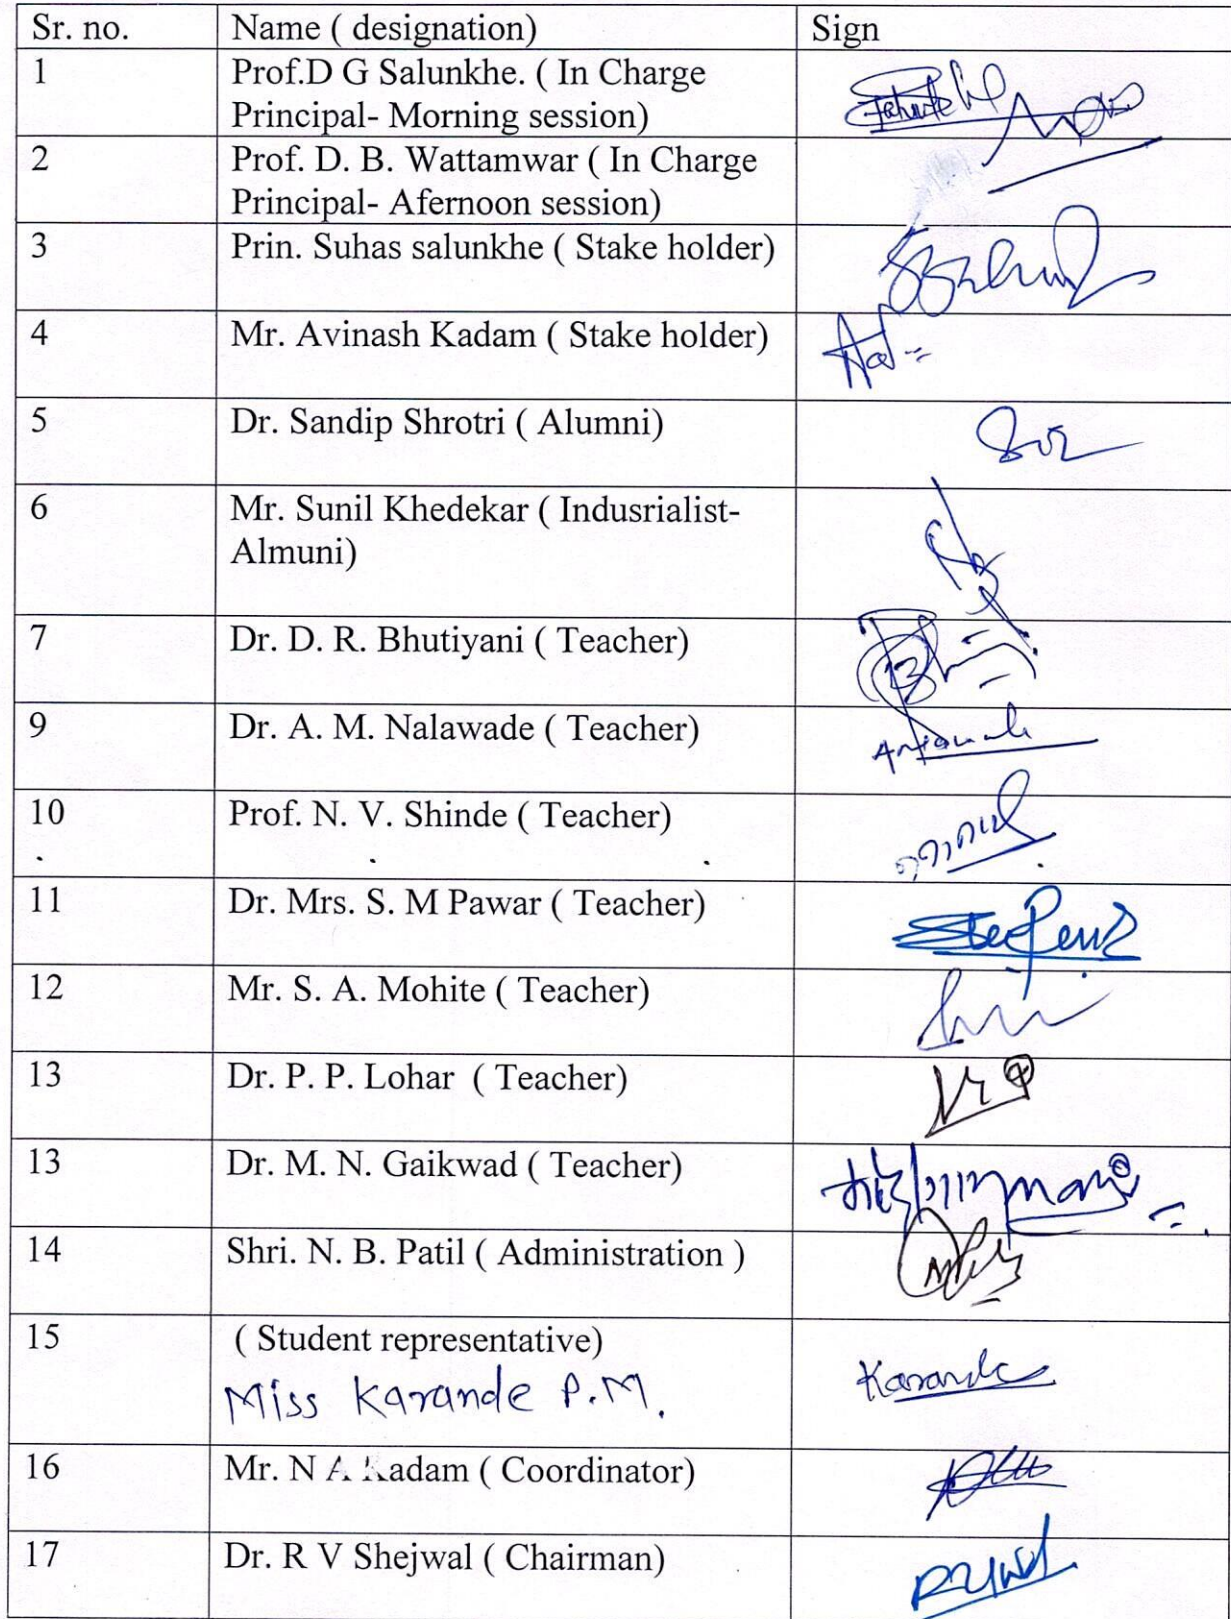 Sr. no. Name ( designation) Sign
1 Prof.D G Salunkhe. ( In Charge
Principal- Morning session)
2 Prof. D. B. Wattamwar ( In Charge
Principal- Afernoon session)
3 Prin. Suhas salunkhe ( Stake holder)
4 Mr. Avinash Kadam ( Stake holder)
5 Dr. Sandip Shrotri ( Alumni)
6 Mr. Sunil Khedekar ( Indusrialist-
Almuni)
7 Dr. D. R. Bhutiyani ( Teacher)
9 Dr. A. M. Nalawade ( Teacher)
10 Prof. N. V. Shinde ( Teacher)
11 Dr. Mrs. S. M Pawar ( Teacher)
12 Mr. S. A. Mohite ( Teacher)
13 Dr. P. P. Lohar ( Teacher)
13 Dr. M. N. Gaikwad ( Teacher)
14 Shri. N. B. Patil ( Administration )
15 ( Student representative)
Miss Karande P.M. Karande
16 Mr. N A Kadam ( Coordinator)
17 Dr. R V Shejwal ( Chairman)